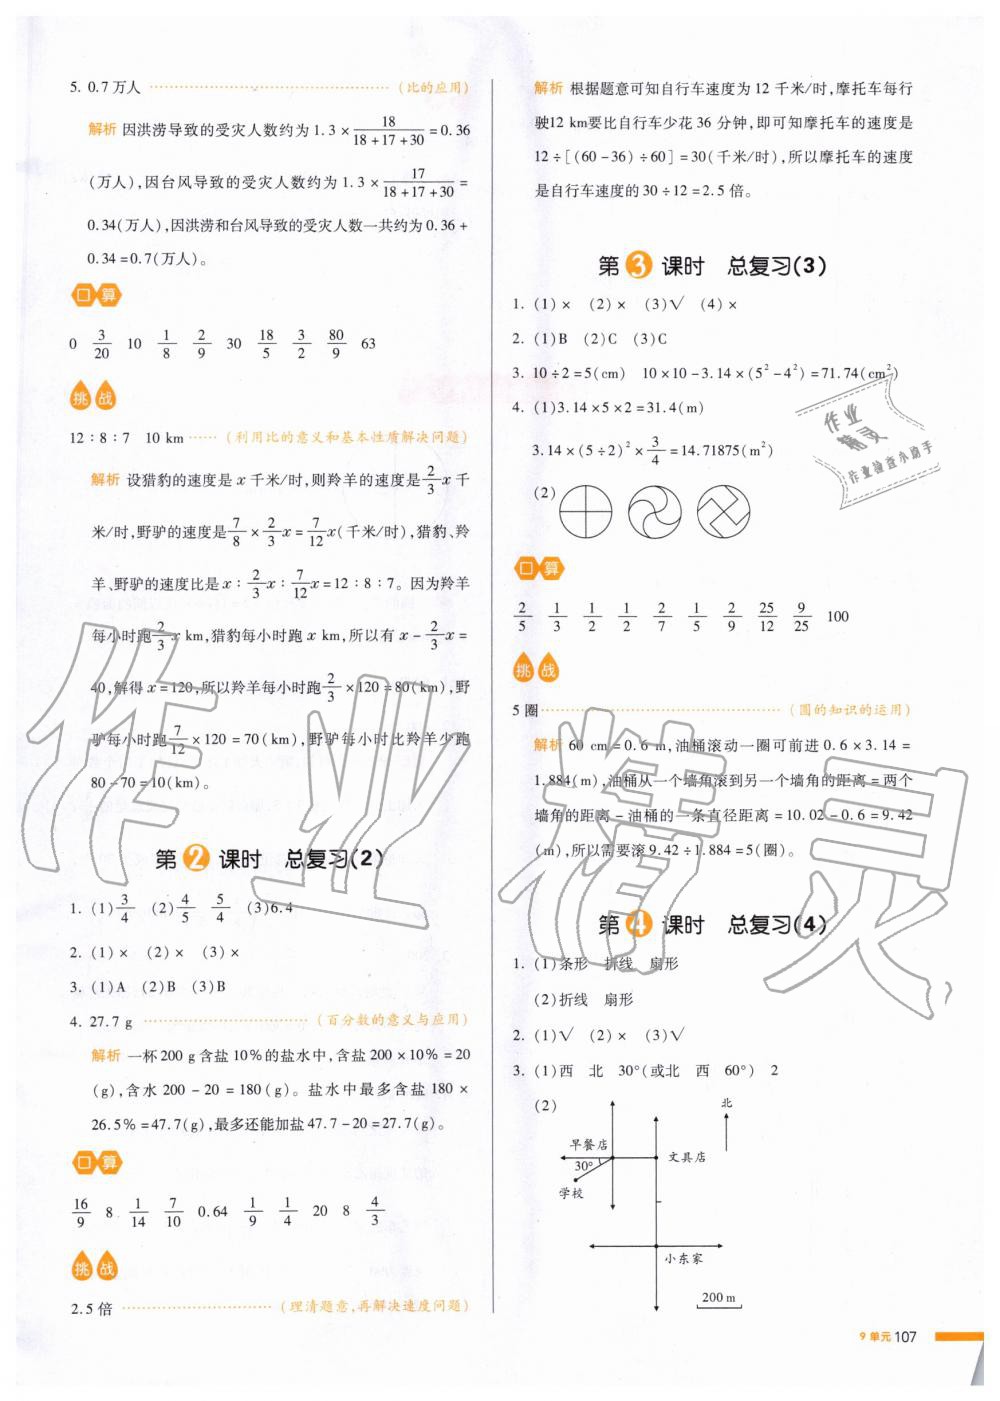 5. 0.7万人 (比的应用)
解析 因洪涝导致的受灾人数约为1.3×18/(18+17+30)=0.36
(万人),因台风导致的受灾人数约为1.3×17/(18+17+30)=
0.34(万人),因洪涝和台风导致的受灾人数一共约为0.36+
0.34=0.7(万人)。
口算
0 3/20 10 1/8 2/9 30 18/5 3/2 80/9 63
挑战
12:8:7 10 km (利用比的意义和基本性质解决问题)
解析 设猎豹的速度是x千米/时,则羚羊的速度是2/3x千
米/时,野驴的速度是7/8×2/3x=7/12x(千米/时),猎豹、羚
羊、野驴的速度比是x:2/3x:7/12x=12:8:7。因为羚羊
每小时跑2/3x km,猎豹每小时跑x km,所以有x-2/3x=
40,解得x=120,所以羚羊每小时跑2/3×120=80(km),野
驴每小时跑7/12×120=70(km),野驴每小时比羚羊少跑
80-70=10(km)。
第2课时 总复习(2)
1. (1)3/4 (2)4/5 5/4 (3)6.4
2. (1)× (2)× (3)×
3. (1)A (2)B (3)B
4. 27.7 g (百分数的意义与应用)
解析 一杯200 g含盐10%的盐水中,含盐200×10%=20
(g),含水200-20=180(g)。盐水中最多含盐180×
26.5%=47.7(g),最多还能加盐47.7-20=27.7(g)。
口算
16/9 8 1/14 7/10 0.64 1/9 1/4 20 8 4/3
挑战
2.5倍 (理清题意,再解决速度问题)
解析 根据题意可知自行车速度为12千米/时,摩托车每行
驶12 km要比自行车少花36分钟,即可知摩托车的速度是
12÷[(60-36)÷60]=30(千米/时),所以摩托车的速度
是自行车速度的30÷12=2.5倍。
第3课时 总复习(3)
1. (1)× (2)× (3)√ (4)×
2. (1)B (2)C (3)C
3. 10÷2=5(cm) 10×10-3.14×(5²-4²)=71.74(cm²)
4. (1)3.14×5×2=31.4(m)
3.14×(5÷2)²×3/4=14.71875(m²)
(2)
口算
2/5 1/3 1/2 1/2 2/7 1/5 2/9 25/12 9/25 100
挑战
5圈 (圆的知识的运用)
解析 60 cm=0.6 m,油桶滚动一圈可前进0.6×3.14=
1.884(m),油桶从一个墙角滚到另一个墙角的距离=两个
墙角的距离-油桶的一条直径距离=10.02-0.6=9.42
(m),所以需要滚9.42÷1.884=5(圈)。
第4课时 总复习(4)
1. (1)条形 折线 扇形
(2)折线 扇形
2. (1)√ (2)× (3)√
3. (1)西 北 30°(或北 西 60°) 2
(2)
北
早餐店
文具店
30°
学校
小东家
200 m
9单元 107
作业精灵
作业
精灵
作业检查小助手